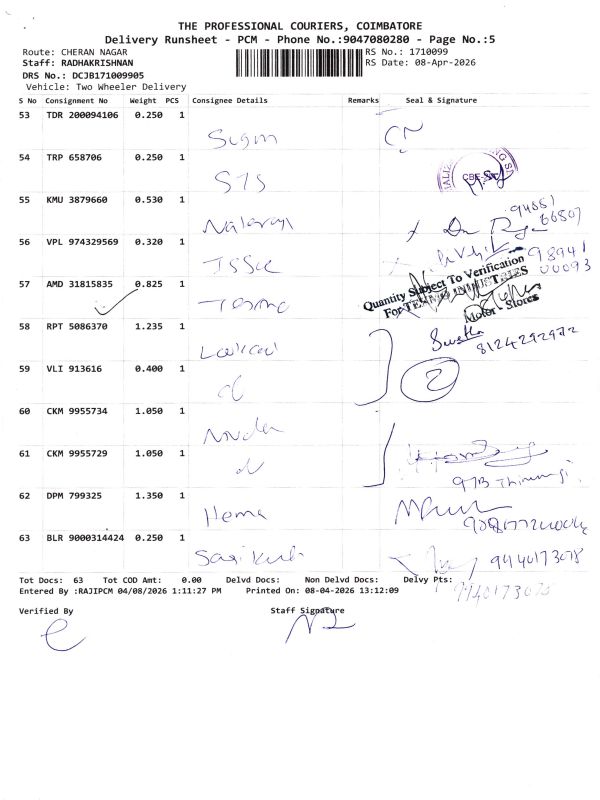 THE PROFESSIONAL COURIERS, COIMBATORE
Delivery Runsheet - PCM - Phone No.:9047080280 - Page No.:5
Route: CHERAN NAGAR
RS No.: 1710099
Staff: RADHAKRISHNAN
RS Date: 08-Apr-2026
DRS No.: DCJB171009905
Vehicle: Two Wheeler Delivery
S No Consignment No Weight PCS Consignee Details Remarks Seal & Signature
53 TDR 200094106 0.250 1
54 TRP 658706 0.250 1
STS
55 KMU 3879660 0.530 1
94881
66807
56 VPL 974329569 0.320 1
98941
00093
57 AMD 31815835 0.825 1
Quantity Subject To Verification
For INDUSTRIES
Motor - Stores
58 RPT 5086370 1.235 1
8124292972
59 VLI 913616 0.400 1
2
60 CKM 9955734 1.050 1
61 CKM 9955729 1.050 1
62 DPM 799325 1.350 1
Hema
63 BLR 9000314424 0.250 1
9440173078
Tot Docs: 63 Tot COD Amt: 0.00 Delvd Docs: Non Delvd Docs: Delvy Pts:
Entered By :RAJIPCM 04/08/2026 1:11:27 PM Printed On: 08-04-2026 13:12:09
Verified By
Staff Signature